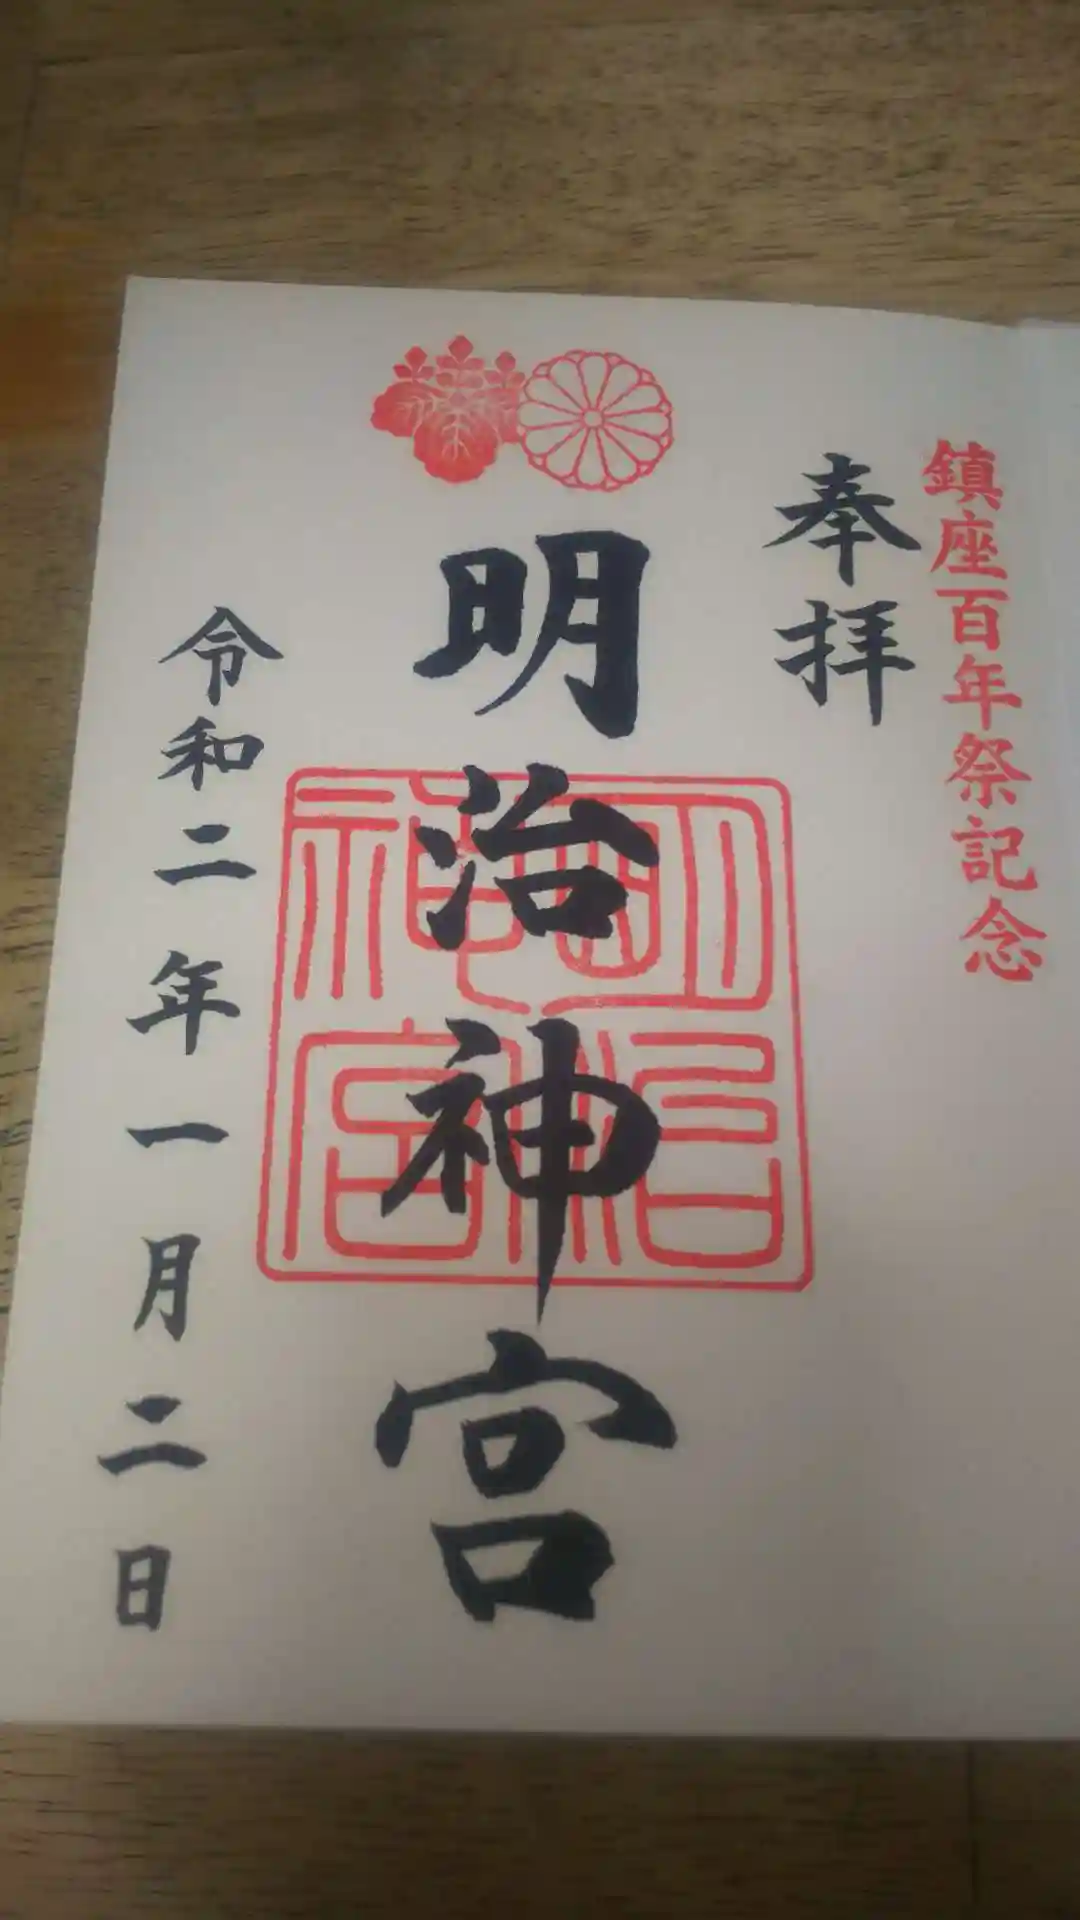 鎮座百年祭記念
奉拝
明治神宮
明治神宮
令和二年一月二日